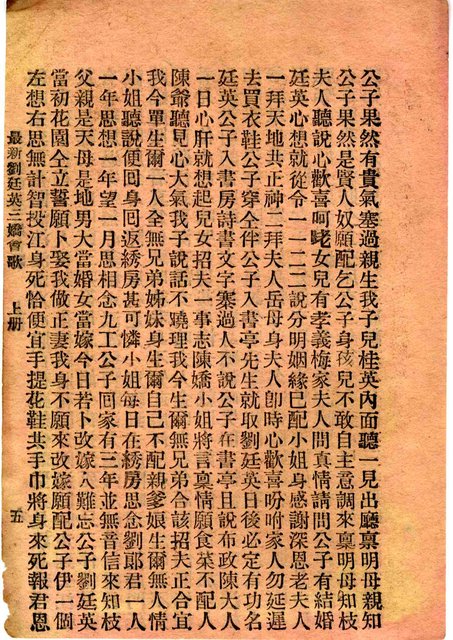 公子果然有貴氣塞過親生我子兒桂英內面聽一見出廳禀明母親知
公子果然是賢人奴願配乞公子身孩兒不敢自主意調來稟明母知枝
夫人聽說心歡喜呵咾女兒有孝義梅家夫人問真情請問公子有結婚
廷英心想就從令一一二二說分明姻緣巳配小姐身感謝深恩老夫人
一拜天地共正神二拜夫人岳母身夫人卽時心歡喜吩咐家人勿延遲
去買衣鞋公子穿仝伴公子入書亭先生就取劉廷英日後必定有功名
廷英公子入書房詩書文字寨過人不說公子在書亭且說布政陳大人
一日心肝就想起兒女招夫一事志陳嬌小姐將言稟情願食菜不配人
陳爺聽見心大氣我子說話不曉理我今生爾無兄弟合該招夫正合宜
我今單生爾一人全無兄弟姊妹身生爾自己不配親爹娘生爾無人情
小姐聽說便回身回返綉房甚可憐小姐每日在綉房思念劉郎君一人
一年思想一年望一月思相念九工公子回家有三年並無音信來知枝
父親是天母是地男大當婚女當嫁今日若卜改嫁人難忘公子劉廷英
當初花園仝立誓願卜娶我做正妻我身不願來改嫁願配公子伊一個
左想右思無計智投江身死恰便宜手提花鞋共手巾將身來死報君恩
最新劉廷英三嬌會歌
上册
五